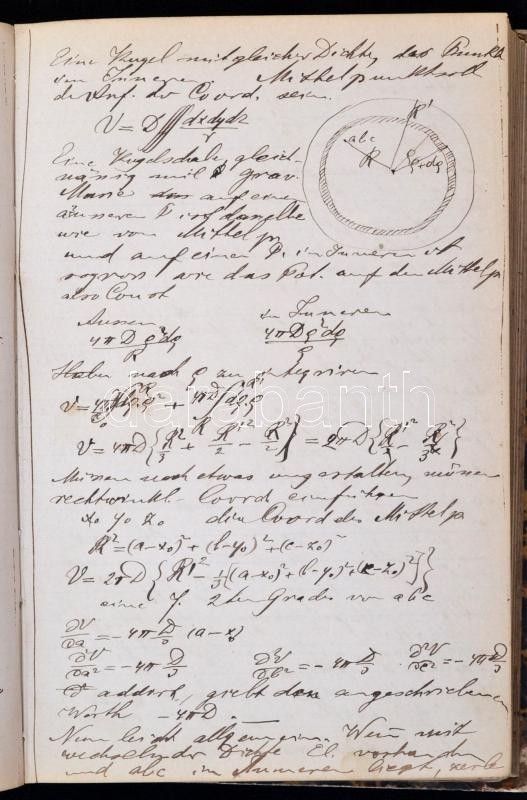 Eine Kugel mit gleicher Dichte, das Punkt
im Inneren. Mittelpunkt soll
der Anf. der Coord. sein.
V = D ∭ dxdydz / r
R'
abc
R
ρ ρ+dρ
Eine Kugelschale, gleich-
mässig mit grav.
Masse auf einen
äusseren P. ist dasselbe
wie vom Mittelp.
und auf einen P. im Inneren ist
so gross wie das Pot. auf den Mittelp.
also Const
Aussen im Inneren
4πDρ²dρ / R 4πDρ²dρ / ρ
Haben nach ρ zu integriren
V = 4πD/R ∫ dρ.ρ² + 4πD ∫ dρ.ρ
V = 4πD { R²/3 + R'²/2 - R²/2 } = 2πD { R'² - R²/3 }
Müssen noch etwas umgestalten, müssen
rechtwinkl. Coord einführen
x₀ y₀ z₀ die Coord des Mittelp
R² = (a-x₀)² + (b-y₀)² + (c-z₀)²
V = 2πD { R'² - 1/3 [(a-x₀)² + (b-y₀)² + (c-z₀)²] }
eine F. 2ten Grades von abc
∂V/∂a = -4π D/3 (a-x₀)
∂²V/∂a² = -4π D/3 ∂²V/∂b² = -4π D/3 . ∂²V/∂c² = -4π D/3
addirt, giebt den angeschriebenen
Werth -4πD.
Nun leicht allgemein. Wenn mit
wechselnder Dichte El. vorhanden
und abc im Inneren liegt,
darabanth